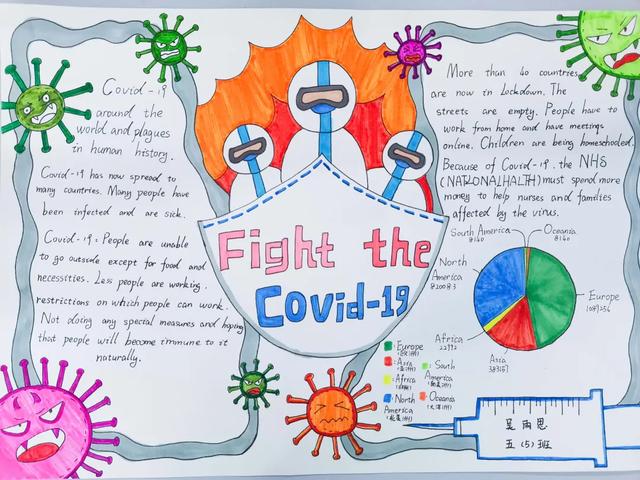 Covid-19
around the
world and plagues
in human history.
Covid-19 has now spread to
many countries. Many people have
been infected and are sick.
Covid-19: People are unable
to go outside except for food and
necessities. Less people are working.
restrictions on which people can work.
Not doing any special measures and hoping
that people will become immune to it
naturally.
Fight the
Covid-19
More than 40 countries
are now in Lockdown. The
streets are empty. People have to
work from home and have meetings
online. Children are being homeschooled.
Because of Covid-19. the NHS
(NATIONALHEALTH) must spend more
money to help nurses and families
affected by the virus.
South America
8140
Oceania
8140
North
America
820083
Europe
1089256
Africa
22992
Asia
383167
Europe
Asia
Africa
North
America
South
America
Oceania
吴雨思
五(5)班